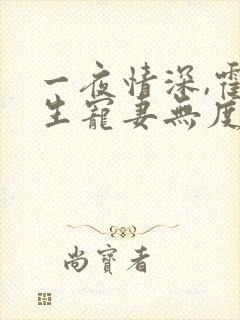 一夜情深,霍
生寵妻無度
尚寶者